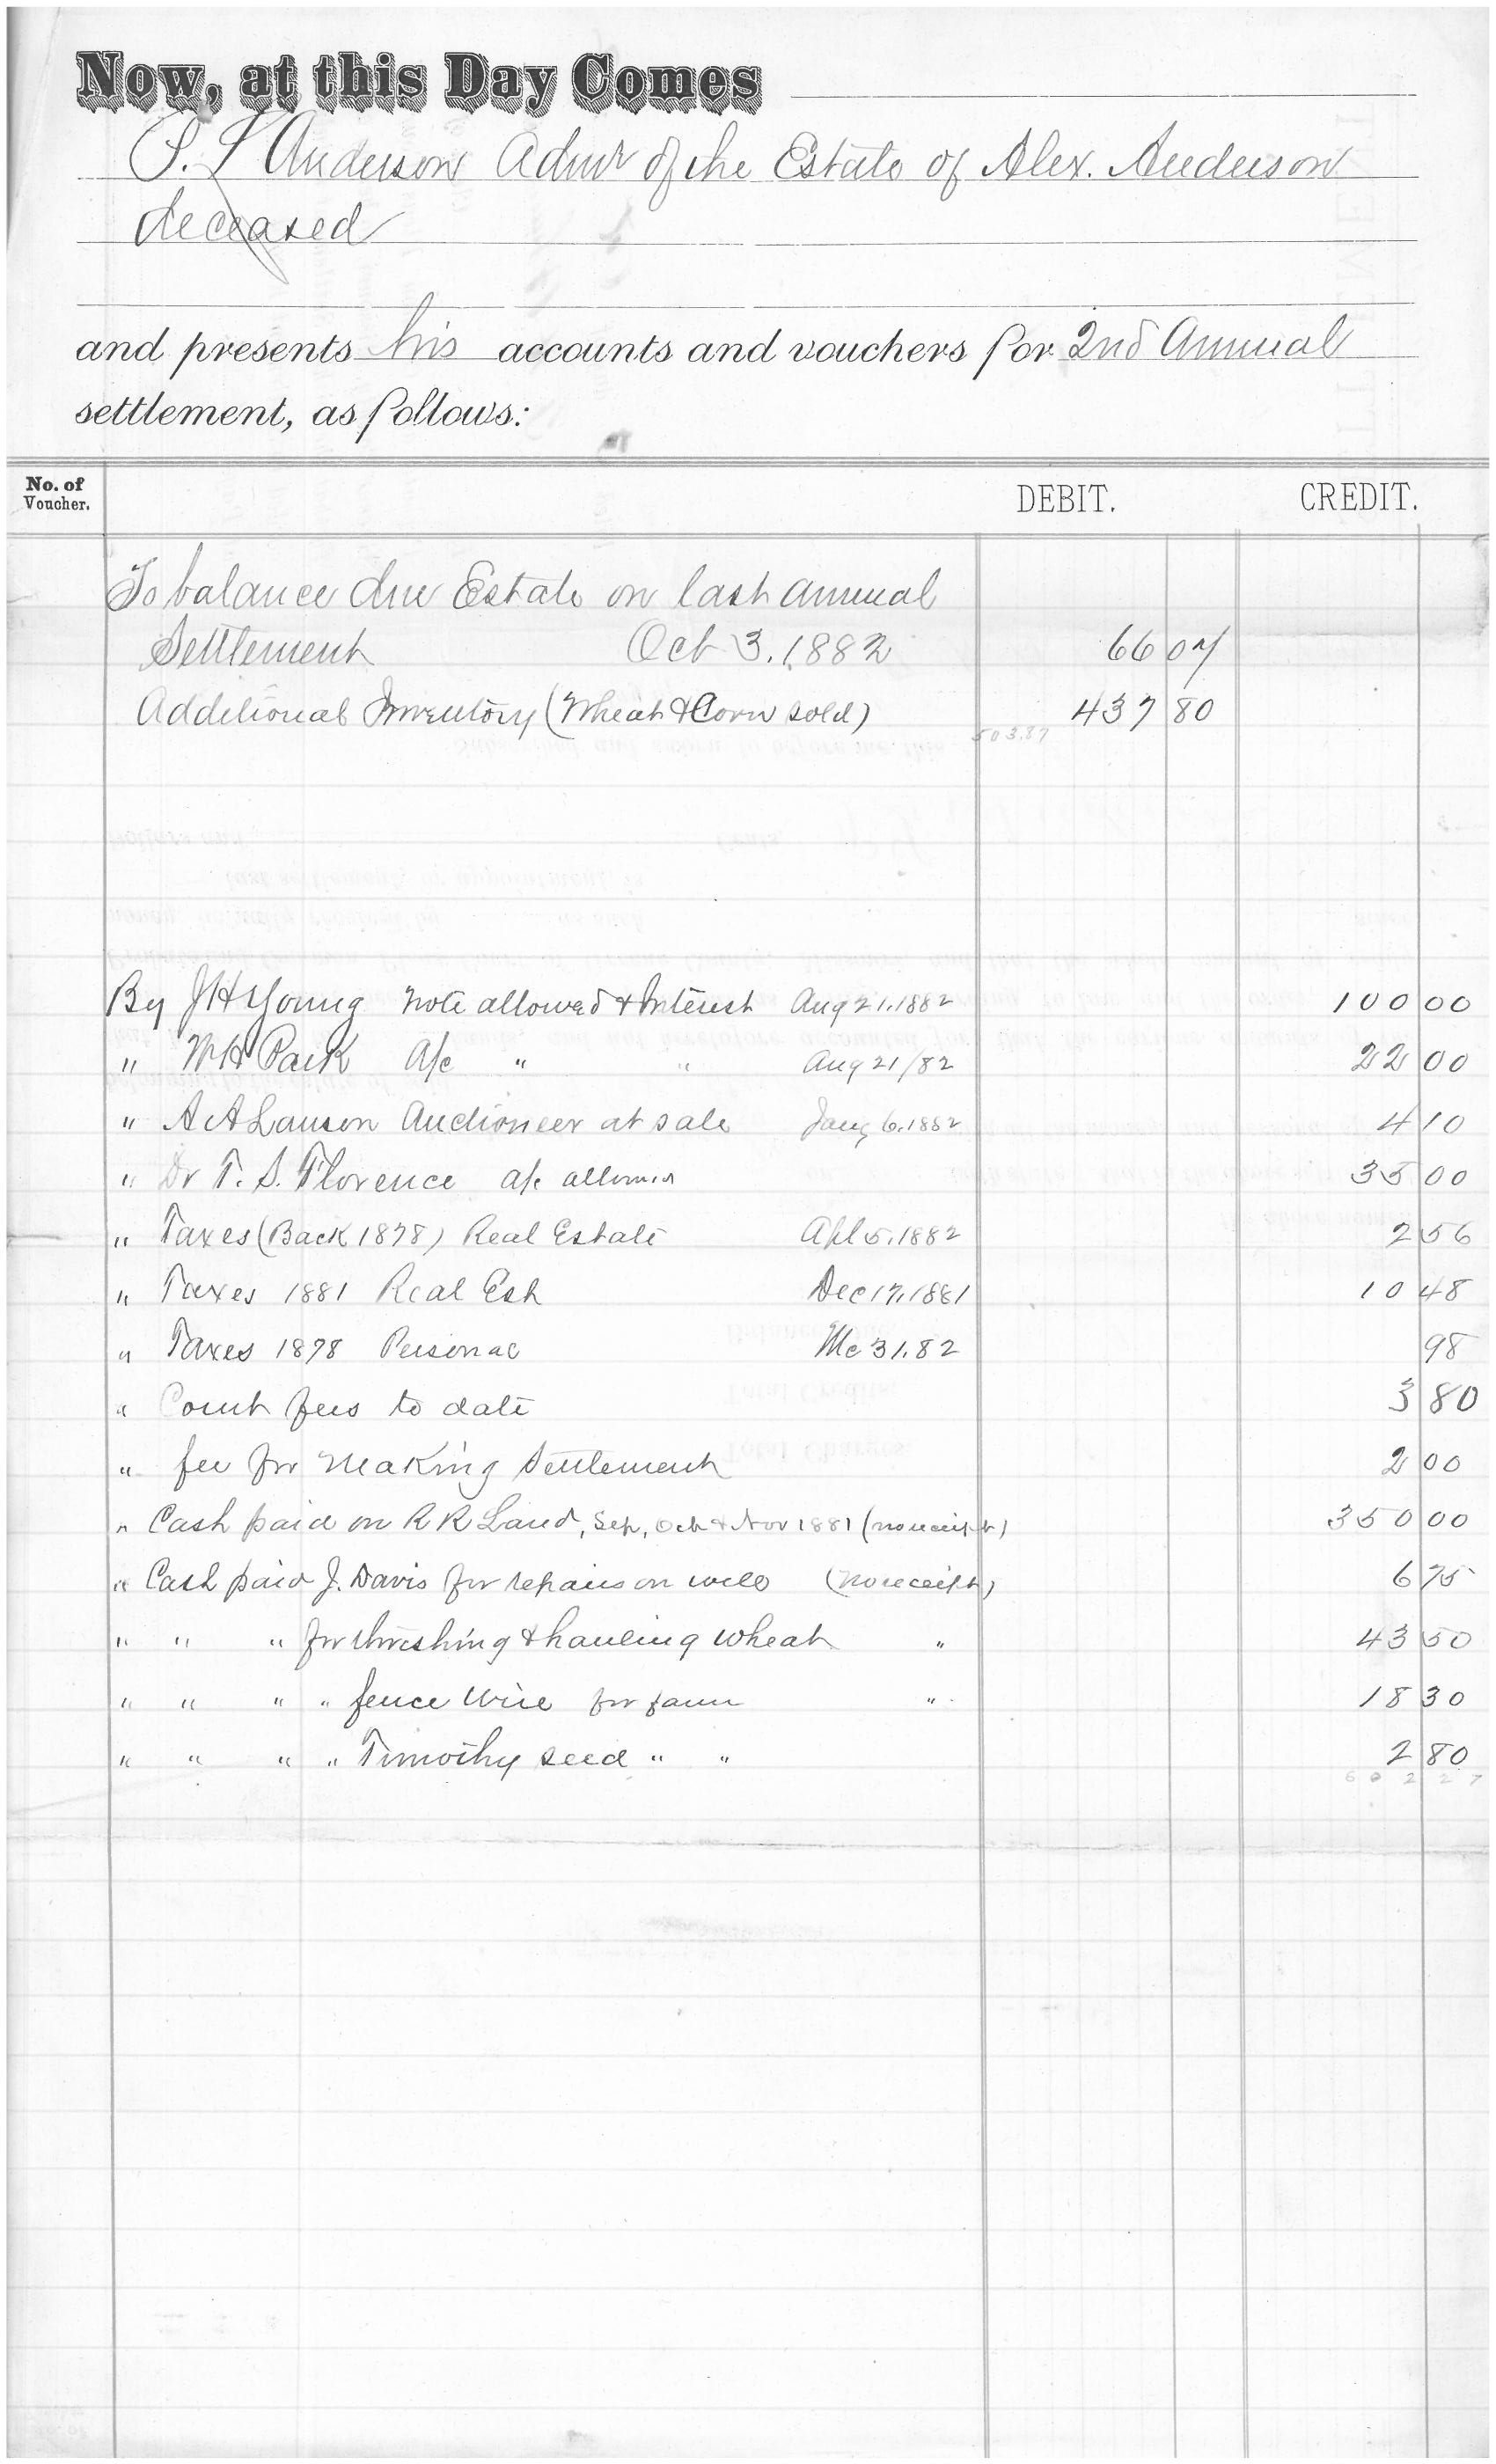 Now, at this Day Comes
S. L Anderson Admr of the Estate of Alex. Anderson
deceased
and presents his accounts and vouchers for 2nd Annual
settlement, as follows:
No. of Voucher. DEBIT. CREDIT.
To balance due Estate on last annual
Settlement Oct 3. 1882 66 07
Additional Inventory (Wheat & Corn sold) 437 80
503.87
By J H Young note allowed & Interest Aug 21, 1882 100 00
" W H Park a/c " " Aug 21/82 22 00
" A A Lauson Auctioneer at sale Jany 6, 1882 4 10
" Dr T. S. Florence a/c allowed 35 00
" Taxes (Back 1878) Real Estate Apl 5, 1882 2 56
" Taxes 1881 Real Est Dec 17, 1881 10 48
" Taxes 1878 Personal Mc 31, 82 98
" Court fees to date 3 80
" fee for making Settlement 2 00
" Cash paid on R R Land, Sep, Oct & Nov 1881 (no receipt) 350 00
" Cash paid J. Davis for repairs on well (no receipt) 6 75
" " " for threshing & hauling wheat " 43 50
" " " " fence wire for farm " 18 30
" " " " Timothy seed " " 2 80
602 27